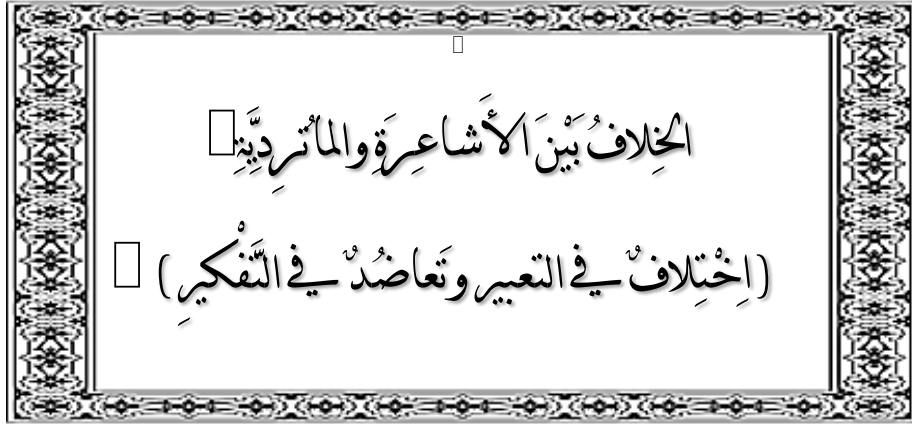 الخِلافُ بَيْنَ الأَشاعِرَةِ والماتُرِدِيَّةِ
(اِخْتِلافٌ في التعبير وتَعاضُدٌ في التَّفْكيرِ)